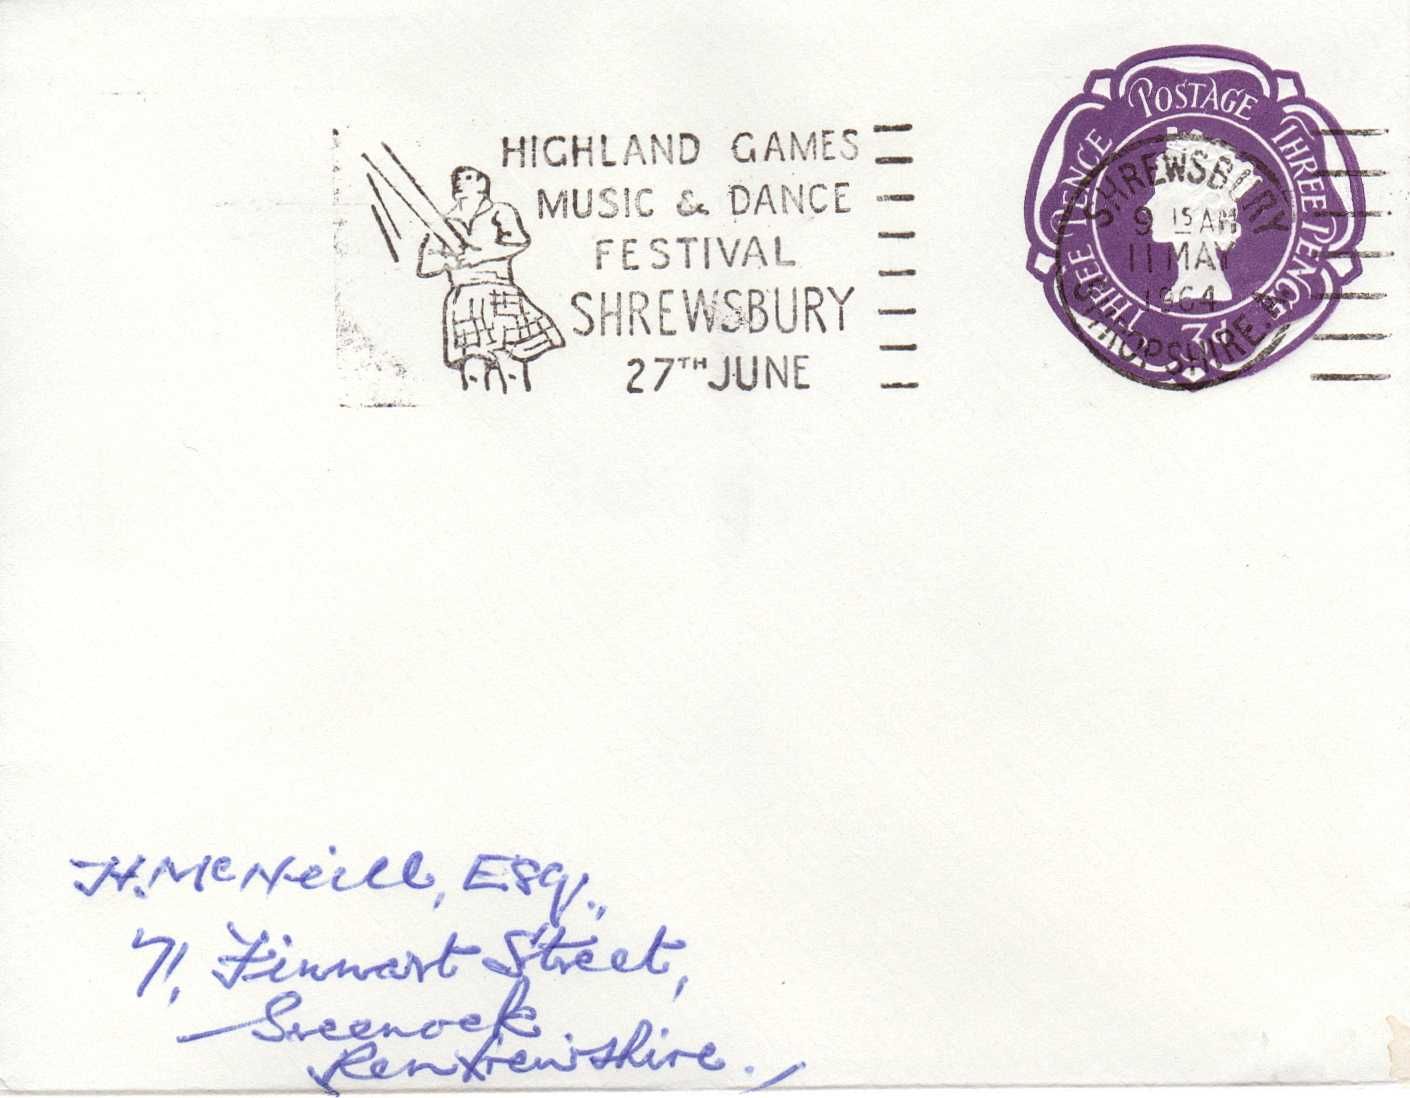 HIGHLAND GAMES
MUSIC & DANCE
FESTIVAL
SHREWSBURY
27TH JUNE
POSTAGE THREE PENCE THREE PENCE
3
SHREWSBURY
9 15 AM
11 MAY
1964
SHROPSHIRE. A
H. McNeill, Esq.,
71, Finnart Street,
Greenock
Renfrewshire.